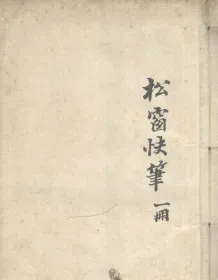 松窗快筆 一冊